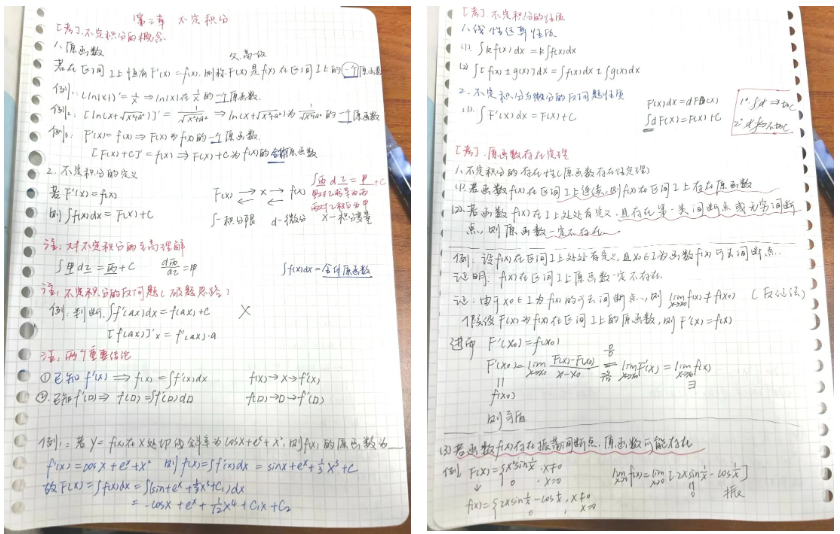 第三章 不定积分
[考]. 不定积分的概念
1. 原函数
若在区间I上恒有F'(x)=f(x). 则称F(x)是f(x)在区间I上的一个原函数
例1: (ln|x|)'=1/x ⇒ ln|x|在1/x的一个原函数
例2: [ln(x+√(x²+a²))]'=1/√(x²+a²) ⇒ ln(x+√(x²+a²))为1/√(x²+a²)的一个原函数
例3: F'(x)=f(x) ⇒ F(x)为f(x)的一个原函数
[F(x)+C]'=f(x) ⇒ F(x)+C为f(x)的全体原函数
2. 不定积分的定义
若F'(x)=f(x)
则∫f(x)dx=F(x)+C
F(x) → x → f(x)
d-微分
注: 对不定积分的
∫甲d乙=丙+C d丙/d乙=甲
∫f(x)dx=全体原函数
注: 不定积分的反问题(破题思路)
例: 判断: ∫f'(ax)dx=f(ax)+C ×
[f(ax)]'x=f'(ax)·a
注: 两个重要结论
①已知f'(x) ⇒ f(x)=∫f'(x)dx f(x)→x→f'(x)
②已知f'(□) ⇒ f(□)=∫f'(□)d□ f(□)→□→f'(□)
例1: 若y=f(x)在x处切线斜率为cosx+eˣ+x², 则f(x)的原函数为
f'(x)=cosx+eˣ+x² 则f(x)=∫f'(x)dx=sinx+eˣ+1/3x³+C
故F(x)=∫f(x)dx=∫(sin+eˣ+1/3x³+C₁)dx
=-cosx+eˣ+1/12x⁴+C₁x+C₂
[考]. 不定积分的性质
1. 线性运算性质
(1). ∫kf(x)dx=k∫f(x)dx
(2) ∫[f(x)±g(x)]dx=∫f(x)dx±∫g(x)dx
2. 不定积分与微分的反问题性质
(1). ∫F'(x)dx=F(x)+C
∫dF(x)=F(x)+C
[考]. 原函数存在定理
1. 不定积分的存在性(原函数存在性定理)
(1). 若函数f(x)在区间I上连续, 则f(x)在区间I上存在原函数
(2). 若函数f(x)在I上处处有定义, 且存在第一类间断点或无穷间断
点, 则原函数一定不存在
例: 设f(x)在区间I上处处有定义, 且x₀∈I为函数f(x)可去间断点.
证明: f(x)在区间I上原函数一定不存在.
证: 由于x₀∈I为f(x)的可去间断点, 则lim f(x)≠f(x₀) (反证法)
假设F(x)为f(x)在区间I上的原函数, 则F'(x)=f(x)
进而 F'(x₀)=f(x₀)
F'(x₀)=lim (F(x)-F(x₀))/(x-x₀) = lim F'(x)=lim f(x)
f(x₀)
(3) 若函数f(x)存在振荡间断点, 原函数可能存在
例: F(x)={x²sin1/x, x≠0
0, x=0
lim f(x)=lim[2xsin1/x-cos1/x]
0 振荡
f(x)={2xsin1/x-cos1/x, x≠0
0, x=0